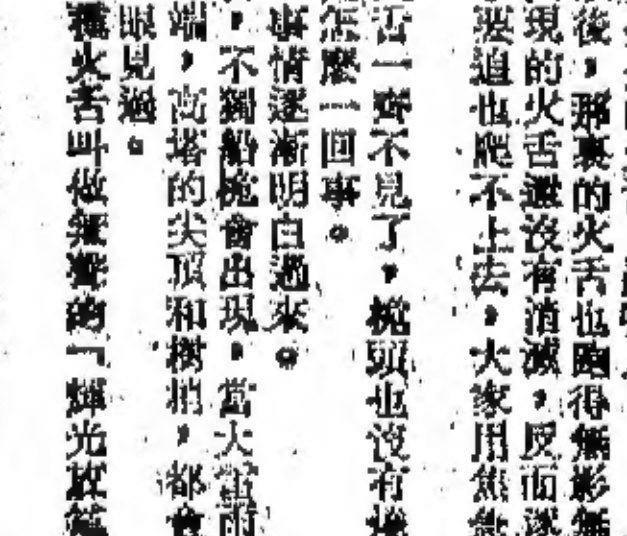 後，那裏的火舌也跑得無影無
現的火舌還沒有消滅，反而逐
要追也爬不上去，大家用焦急
舌一聲不見了，桅頭也沒有
怎麼一回事。
事情逐漸明白過來。
，不獨船桅會出現，當大雷雨
端，高塔的尖頂和樹梢，都會
眼見過。
種火舌叫做無聲的「輝光放